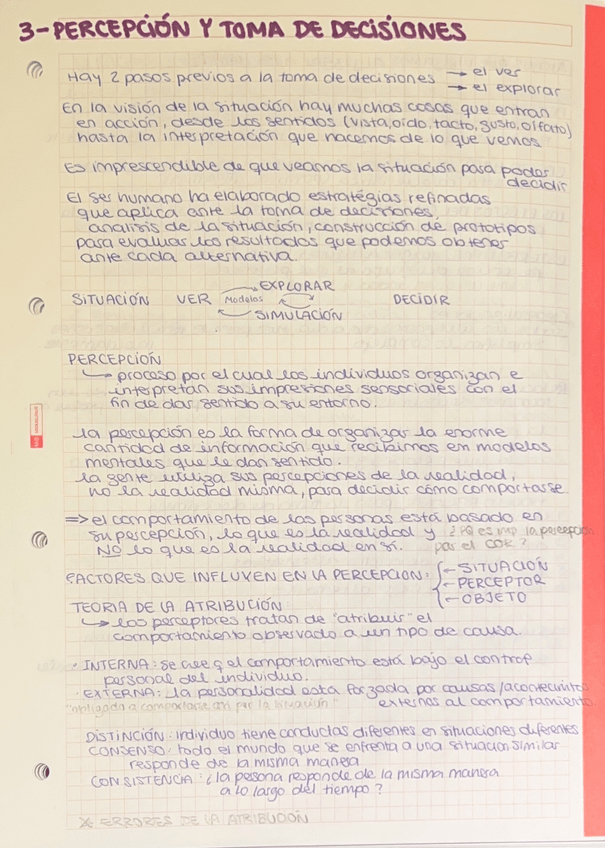 3-PERCEPCIÓN Y TOMA DE DECISIONES
Hay 2 pasos previos a la toma de decisiones → el ver
→ el explorar
En la visión de la situación hay muchas cosas que entran
en acción, desde los sentidos (vista, oído, tacto, gusto, olfato)
hasta la interpretación que hacemos de lo que vemos
Es imprescindible de que veamos la situación para poder
decidir
El ser humano ha elaborado estratégias refinadas
que aplica ante la toma de decisiones,
analisis de la situación, construcción de prototipos
para evaluar los resultados que podemos obtener
ante cada alternativa.
EXPLORAR
SITUACIÓN VER Modelos DECIDIR
SIMULACIÓN
PERCEPCIÓN
↳ proceso por el cual los individuos organizan e
interpretan sus impresiones sensoriales con el
fin de dar sentido a su entorno.
la percepción es la forma de organizar la enorme
cantidad de información que recibimos em modelos
mentales que le dan sentido.
la gente utiliza sus percepciones de la realidad,
no la realidad misma, para decidir cómo comportarse
=> el comportamiento de las personas está basado en
su percepción, lo que es la realidad y ¿PQ es imp la percepción
NO lo que es la realidad en sí. par el COR?
FACTORES QUE INFLUYEN EN LA PERCEPCIÓN: - SITUACIÓN
- PERCEPTOR
- OBJETO
TEORIA DE LA ATRIBUCIÓN
↳ los perceptores tratan de "atribuir" el
comportamiento observado a un tipo de causa.
· INTERNA: se cree q el comportamiento está bajo el control
personal del individuo.
· EXTERNA: la personalidad esta forzada por causas/acontecimientos
"obligada a comportarse así por la situación" externos al comportamiento
DISTINCIÓN: individuo tiene conductas diferentes en situaciones diferentes
CONSENSO: todo el mundo que se enfrenta a una situacion similar
responde de la misma manera
CONSISTENCIA: ¿la pesona responde de la misma manera
a lo largo del tiempo?
* ERRORES DE LA ATRIBUCIÓN